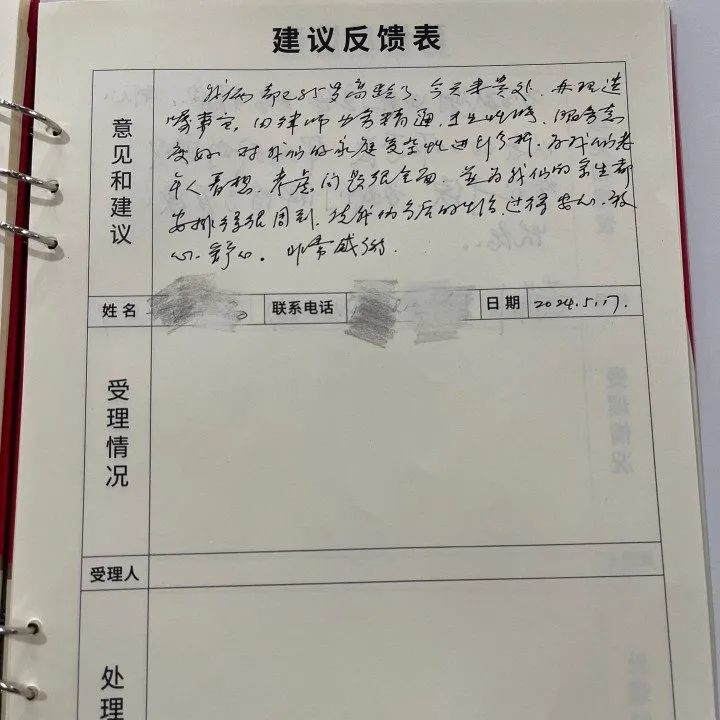 建议反馈表
意见和建议
我俩都已85岁高龄了，今天来贵处，办理遗
嘱事宜，田律师业务精通，服务态
度好，对我们的家庭复杂性进行分析，为我们老
年人着想，考虑问题很全面，並为我们的余生都
安排得很周到，使我俩今后的生活，过得安心、放
心、舒心。非常感谢。
姓名
联系电话
日期 2024.5.17.
受理情况
受理人
处理